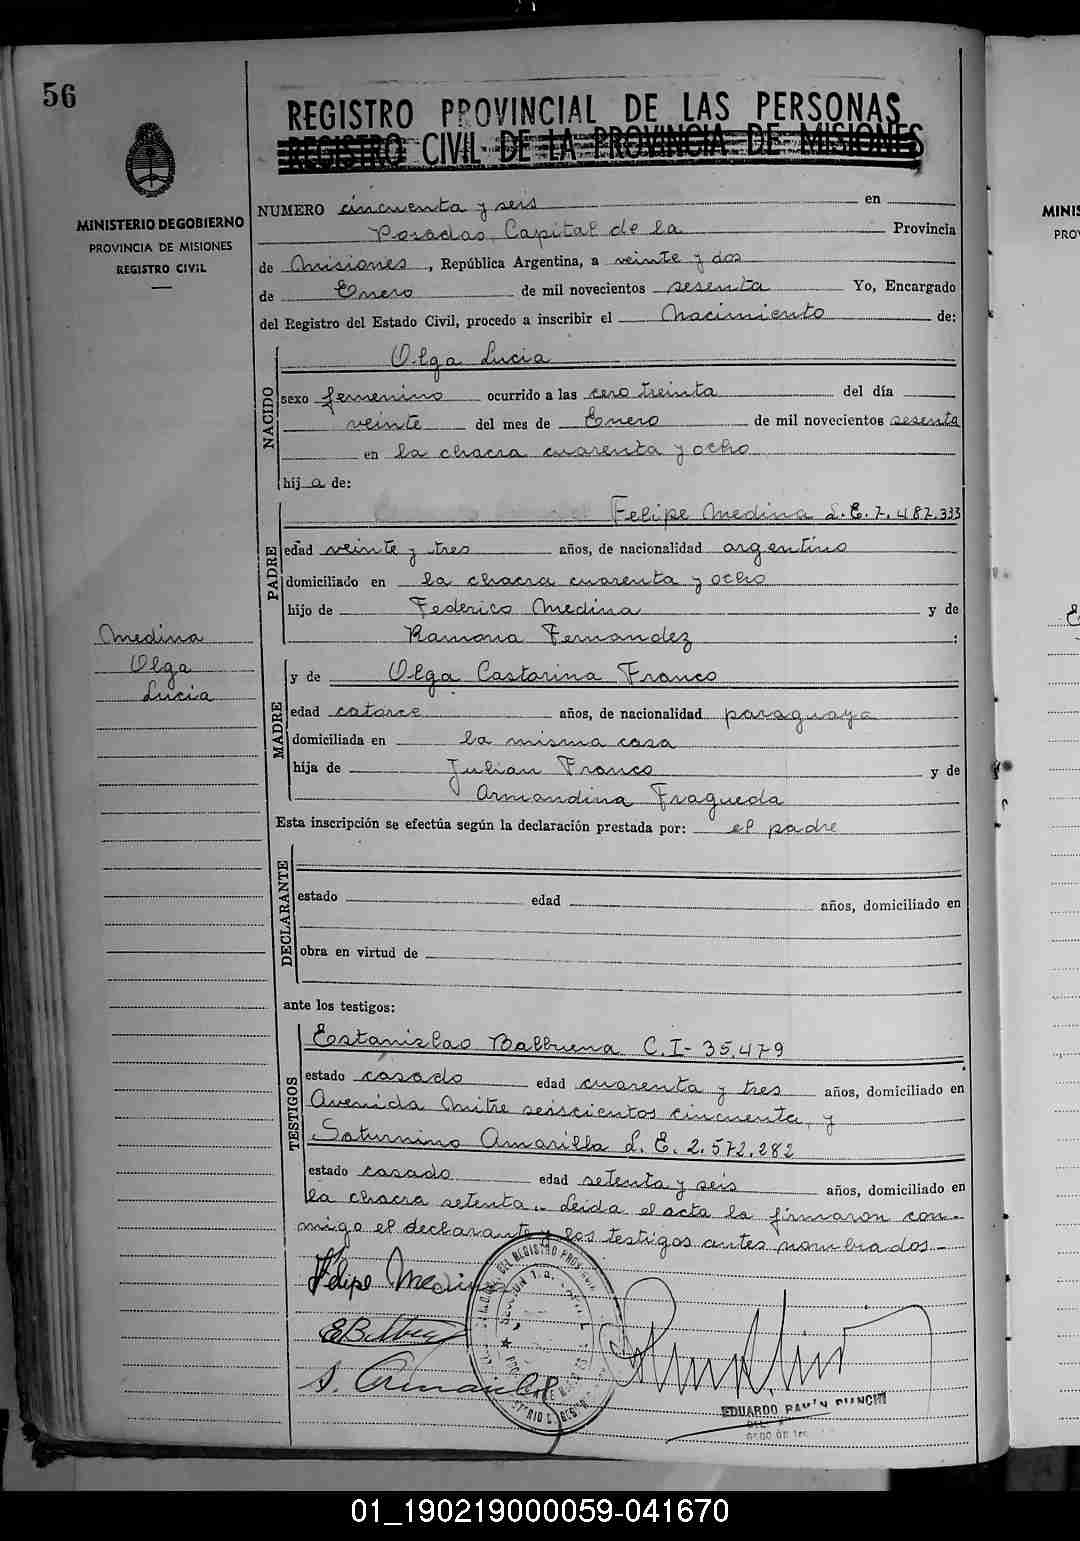 56
REGISTRO PROVINCIAL DE LAS PERSONAS
REGISTRO CIVIL DE LA PROVINCIA DE MISIONES
MINISTERIO DE GOBIERNO
PROVINCIA DE MISIONES
REGISTRO CIVIL
NUMERO cincuenta y seis en
Posadas, Capital de la Provincia
de Misiones, República Argentina, a veinte y dos
de Enero de mil novecientos sesenta Yo, Encargado
del Registro del Estado Civil, procedo a inscribir el Nacimiento de:
NACIDO
Olga Lucia
sexo femenino ocurrido a las cero treinta del día
veinte del mes de Enero de mil novecientos sesenta
en la chacra cuarenta y ocho
hij a de:
PADRE
Felipe Medina L.E. 7.487.333
edad veinte y tres años, de nacionalidad argentino
domiciliado en la chacra cuarenta y ocho
hijo de Federico Medina y de
Ramona Fernandez :
Medina
Olga
Lucia
MADRE
y de Olga Catarina Franco
edad catorce años, de nacionalidad paraguaya
domiciliada en la misma casa
hija de Julian Franco y de
Armandina Fragueda
Esta inscripción se efectúa según la declaración prestada por: el padre
DECLARANTE
estado edad años, domiciliado en
obra en virtud de
ante los testigos:
TESTIGOS
Estanislao Balbuena C.I- 35.479
estado casado edad cuarenta y tres años, domiciliado en
Avenida Mitre seiscientos cincuenta, y
Saturnino Amarilla L.E. 2.572.282
estado casado edad setenta y seis años, domiciliado en
la chacra setenta.. Leida el acta la firmaron con-
migo el declarante y los testigos antes nombrados-
Felipe Medina
S. Amarilla
EDUARDO RAMÓN BIANCHI
MINIS
PRO
01_190219000059-041670